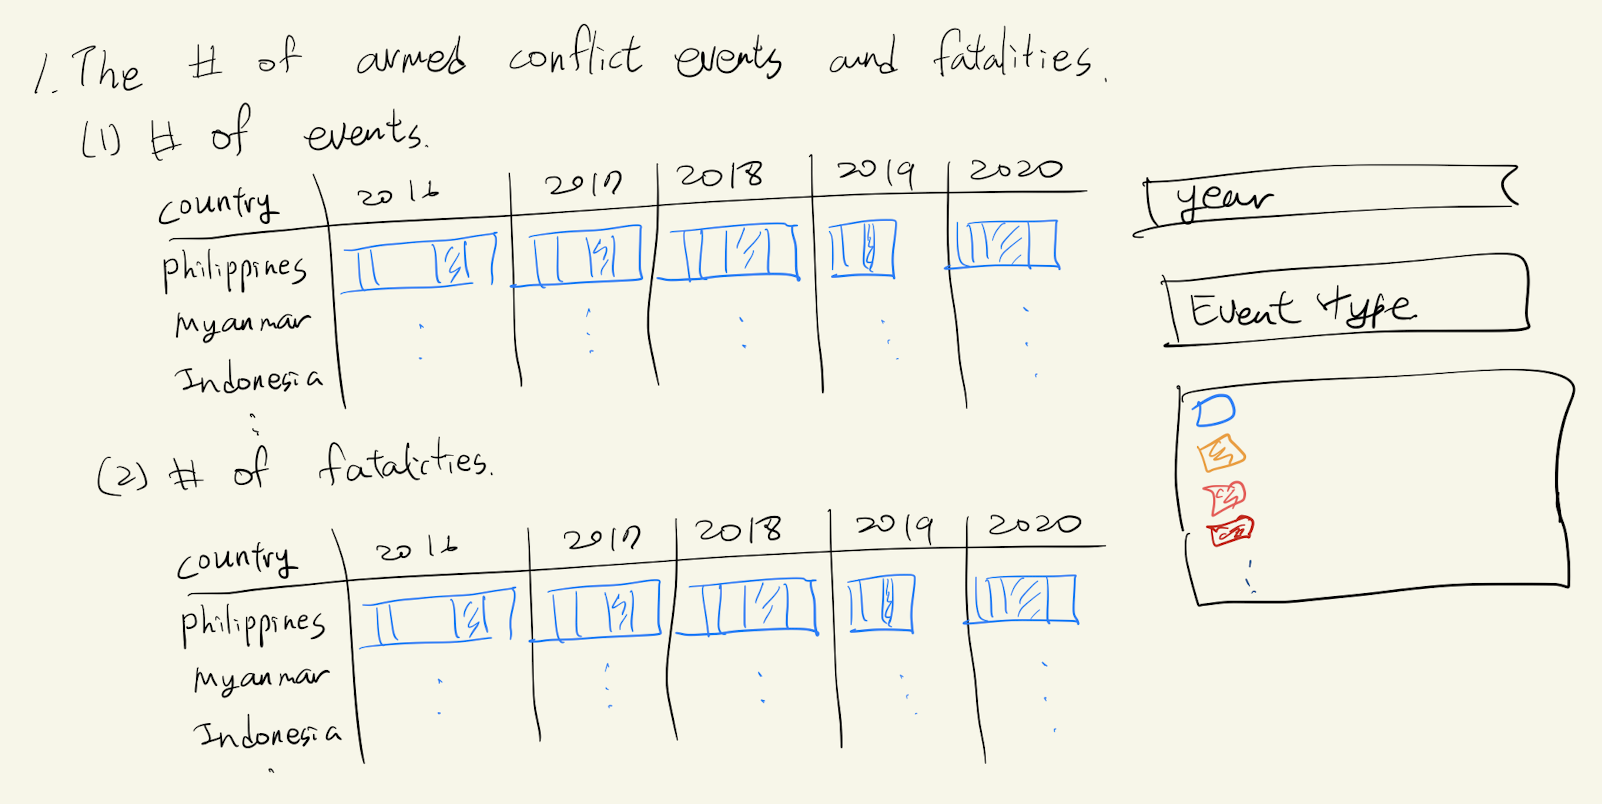 1. The # of armed conflict events and fatalities.
(1) # of events.
country 2016 2017 2018 2019 2020
Philippines
Myanmar
Indonesia
year
Event type
(2) # of fatalicties.
country 2016 2017 2018 2019 2020
Philippines
Myanmar
Indonesia